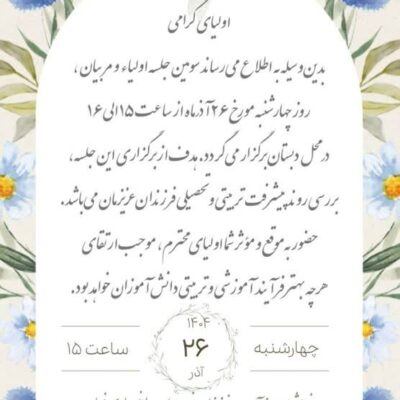 اولیای گرامی
بدین وسیله به اطلاع می رساند سومین جلسه اولیاء و مربیان ،
روز چهارشنبه مورخ ۲۶ آذرماه از ساعت ۱۵ الی ۱۶
در محل دبستان برگزار می گردد. هدف از برگزاری این جلسه،
بررسی روند پیشرفت تربیتی و تحصیلی فرزندان عزیزمان می باشد.
حضور به موقع و مؤثر شما اولیای محترم ، موجب ارتقای
هرچه بهتر فرآیند آموزشی و تربیتی دانش آموزان خواهد بود.
۱۴۰۴
چهارشنبه ۲۶ ساعت ۱۵
آذر